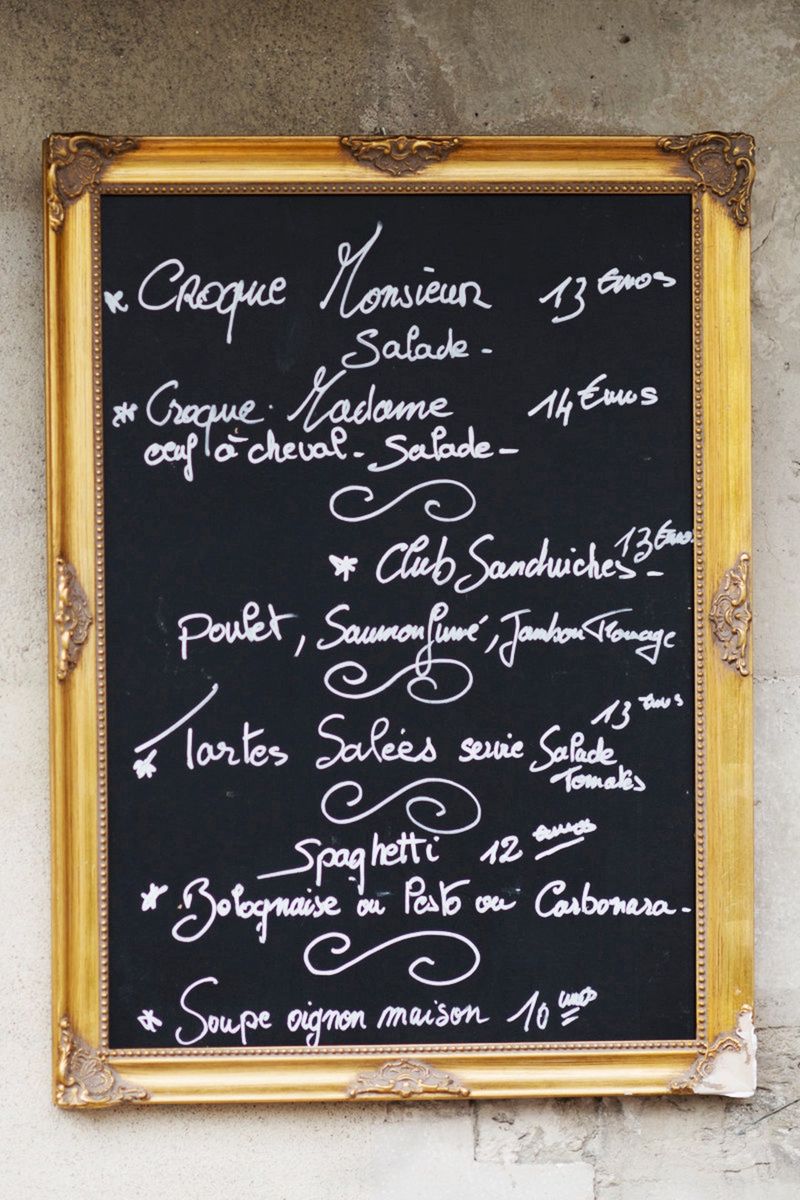 * Croque Monsieur 13 Euros
Salade -
* Croque Madame 14 Euros
œuf à cheval - Salade -
13 Euros
* Club Sandwiches -
Poulet, Saumon fumé, Jambon Fromage
13 euros
* Tartes Salées servie Salade
Tomates
Spaghetti 12 euros
* Bolognaise ou Pesto ou Carbonara -
* Soupe oignon maison 10 euros